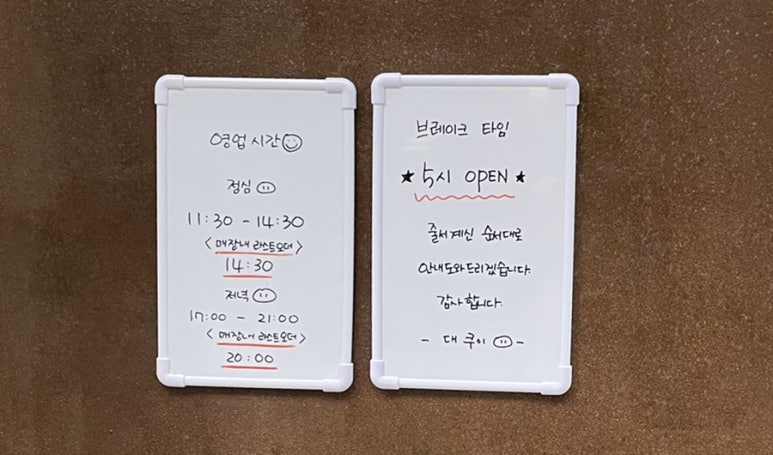 영업시간
점심
11:30 - 14:30
<매장내 라스트오더>
14:30
저녁
17:00 - 21:00
<매장내 라스트오더>
20:00
브레이크 타임
★ 5시 OPEN ★
줄서계신 순서대로
안내도와드리겠습니다.
감사합니다.
- 대쿠이 -